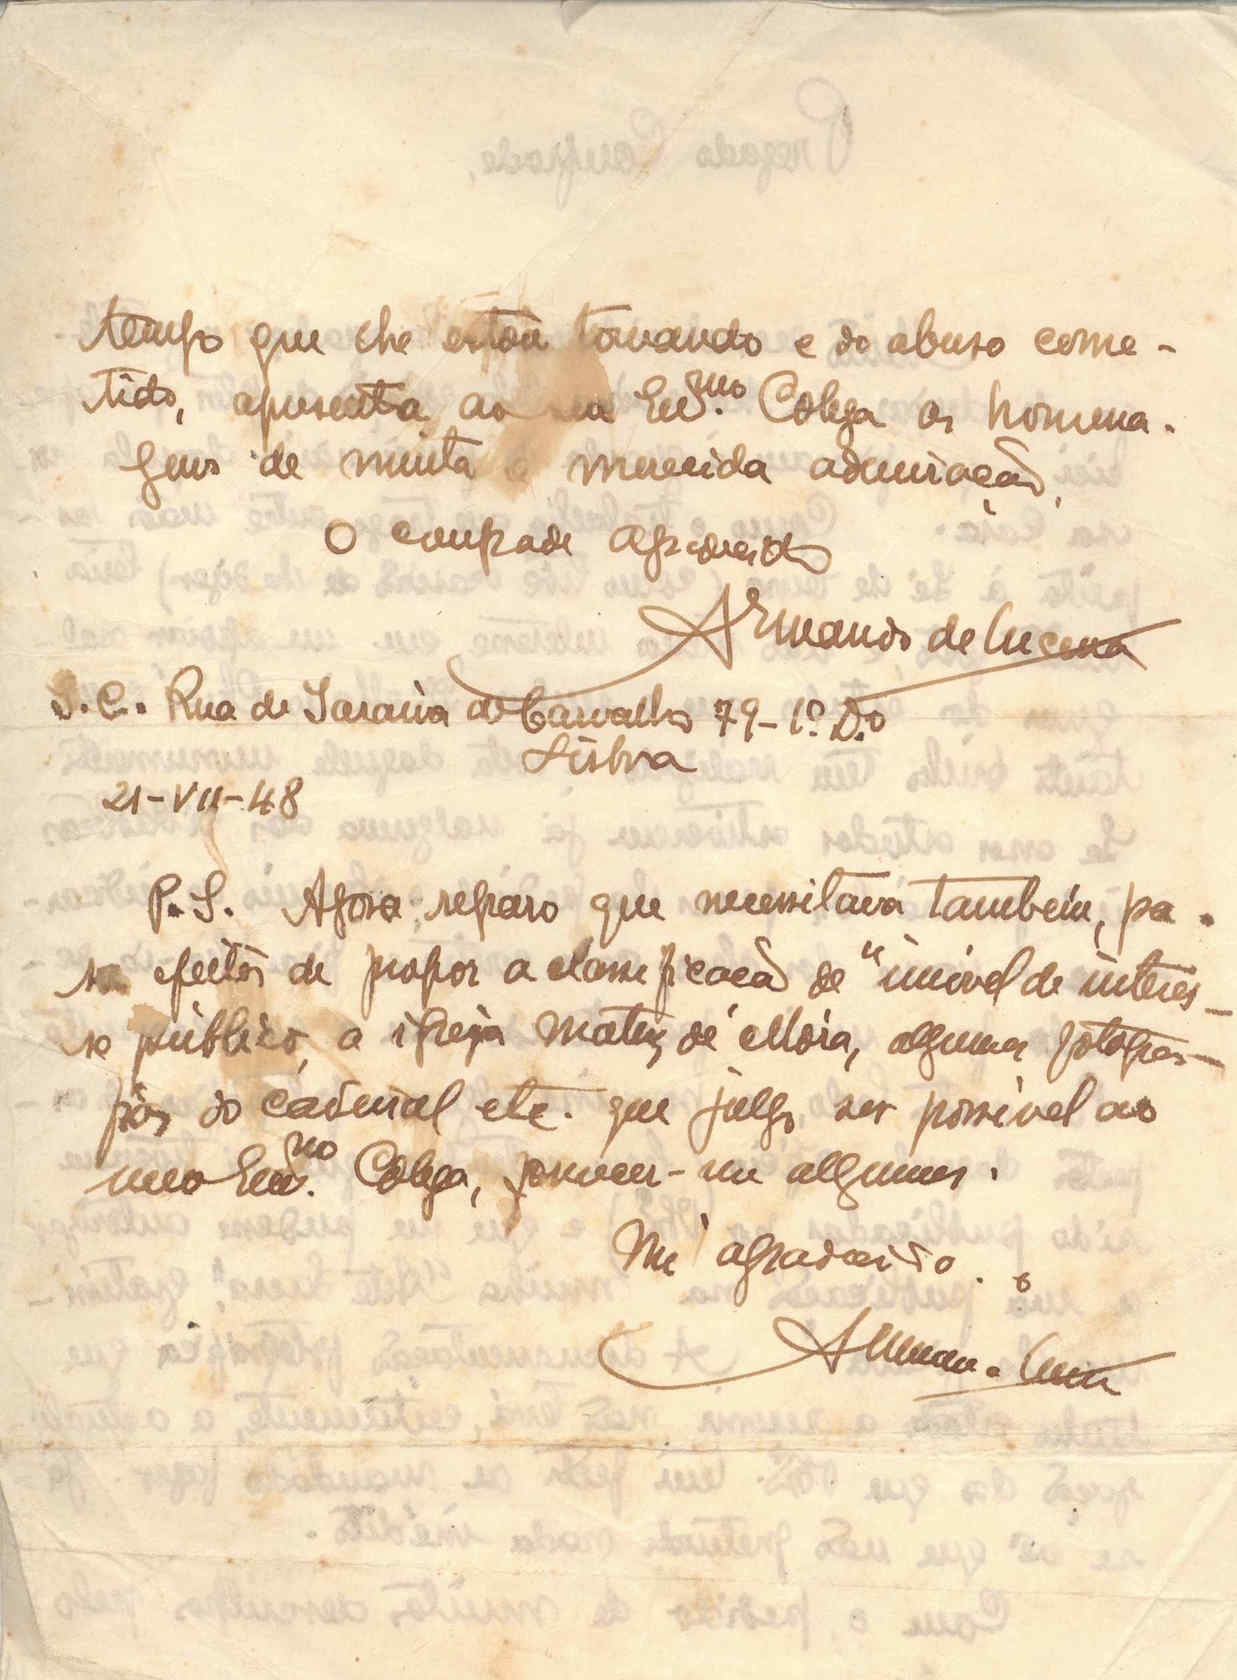 tempo que lhe estou tomando e do abuso come-
tido, apresenta ao seu Ex.mo Colega as homena-
gens de muita e merecida admiração,
O confrade agradecido
Armando de Lucena
S.C. Rua de Saraiva de Carvalho 79-1º D.o
Lisboa
21-VII-48
P.S. Agora reparo que necessitava tambem, pa-
ra efeitos de propor a classificação de "imóvel de interes-
se público, a igreja matriz de Moia, algumas fotogra-
fias do cadeiral etc. que julgo ser possivel ao
meu Ex.mo Colega, fornecer-me algumas.
Mt agradecido.
Arman. Lucena